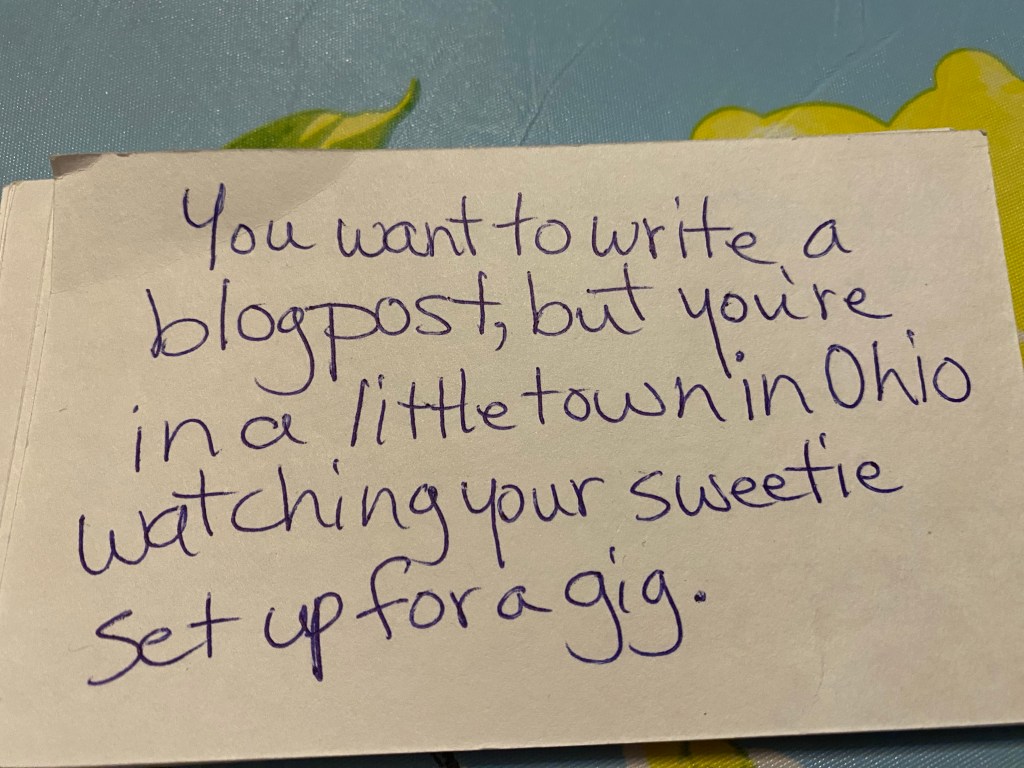 You want to write a
blogpost, but you're
in a little town in Ohio
watching your sweetie
set up for a gig.